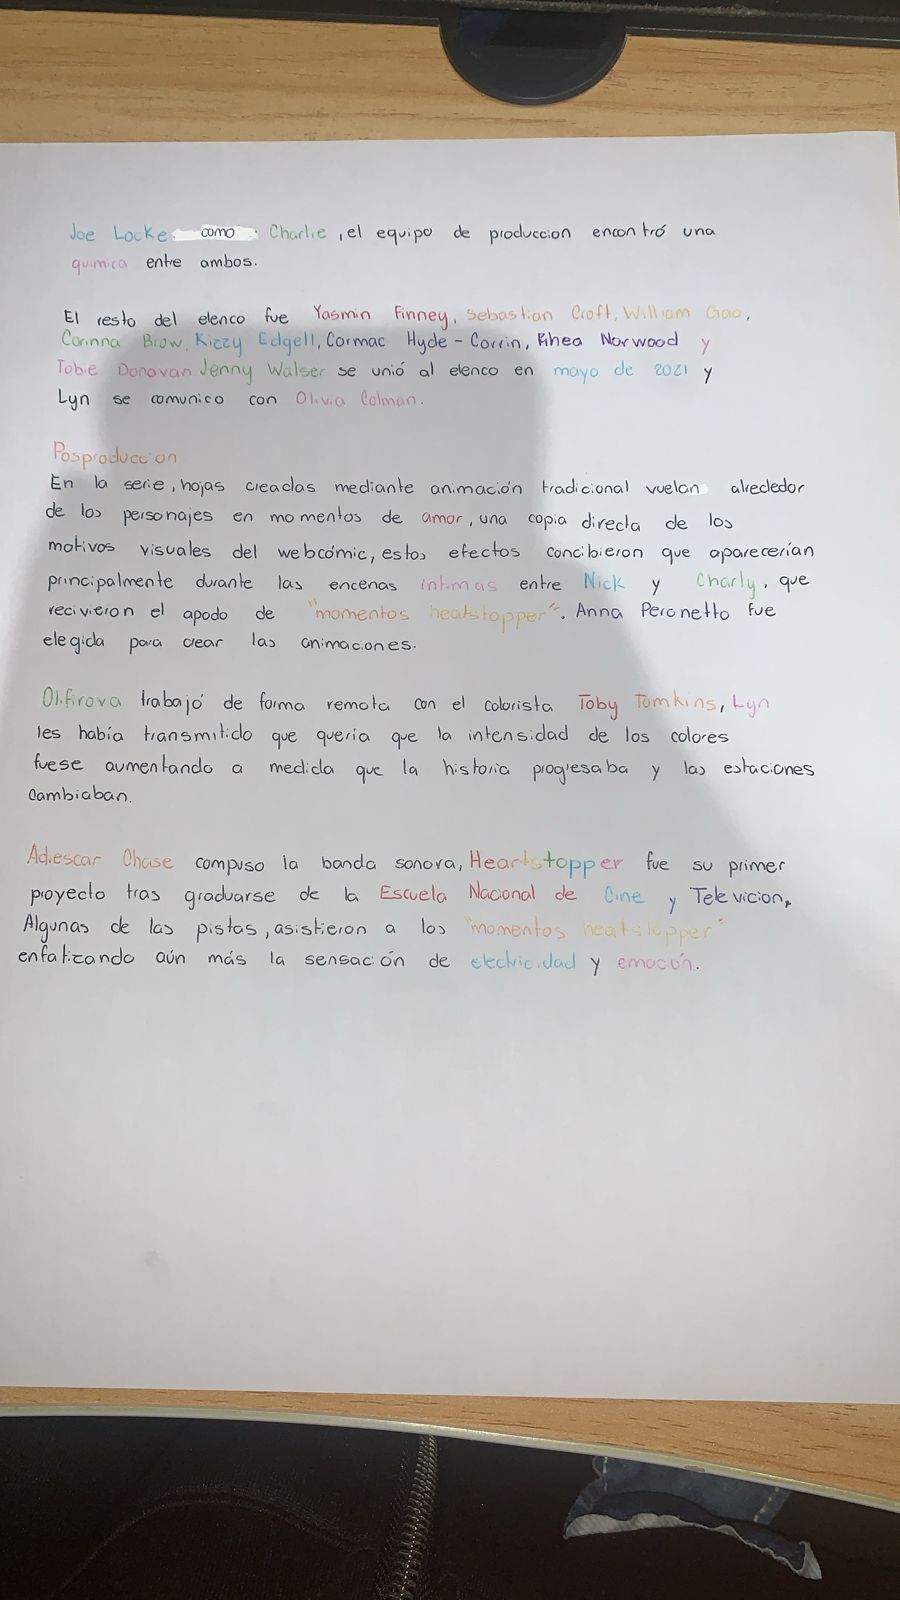 Joe Locke como Charlie, el equipo de produccion encontró una
quimica entre ambos.
El resto del elenco fue Yasmin Finney, Sebastian Croft, William Gao,
Corinna Brow, Kizzy Edgell, Cormac Hyde-Corrin, Rhea Norwood y
Tobie Donovan Jenny Walser se unió al elenco en mayo de 2021 y
Lyn se comunico con Olivia Colman.
Posproduccion
En la serie, hojas creadas mediante animación tradicional vuelan alrededor
de los personajes en momentos de amor, una copia directa de los
motivos visuales del webcómic, estos efectos concibieron que aparecerían
principalmente durante las encenas intimas entre Nick y Charly, que
recivieron el apodo de "momentos heatstopper". Anna Peronetto fue
elegida para crear las animaciones.
Olifirova trabajó de forma remota con el colorista Toby Tomkins, Lyn
les había transmitido que quería que la intensidad de los colores
fuese aumentando a medida que la historia progresaba y las estaciones
cambiaban.
Adiescar Chase compuso la banda sonora, Heartstopper fue su primer
proyecto tras graduarse de la Escuela Nacional de Cine y Televicion,
Algunas de las pistas, asistieron a los "momentos heatstopper"
enfatizando aún más la sensación de electricidad y emoción.